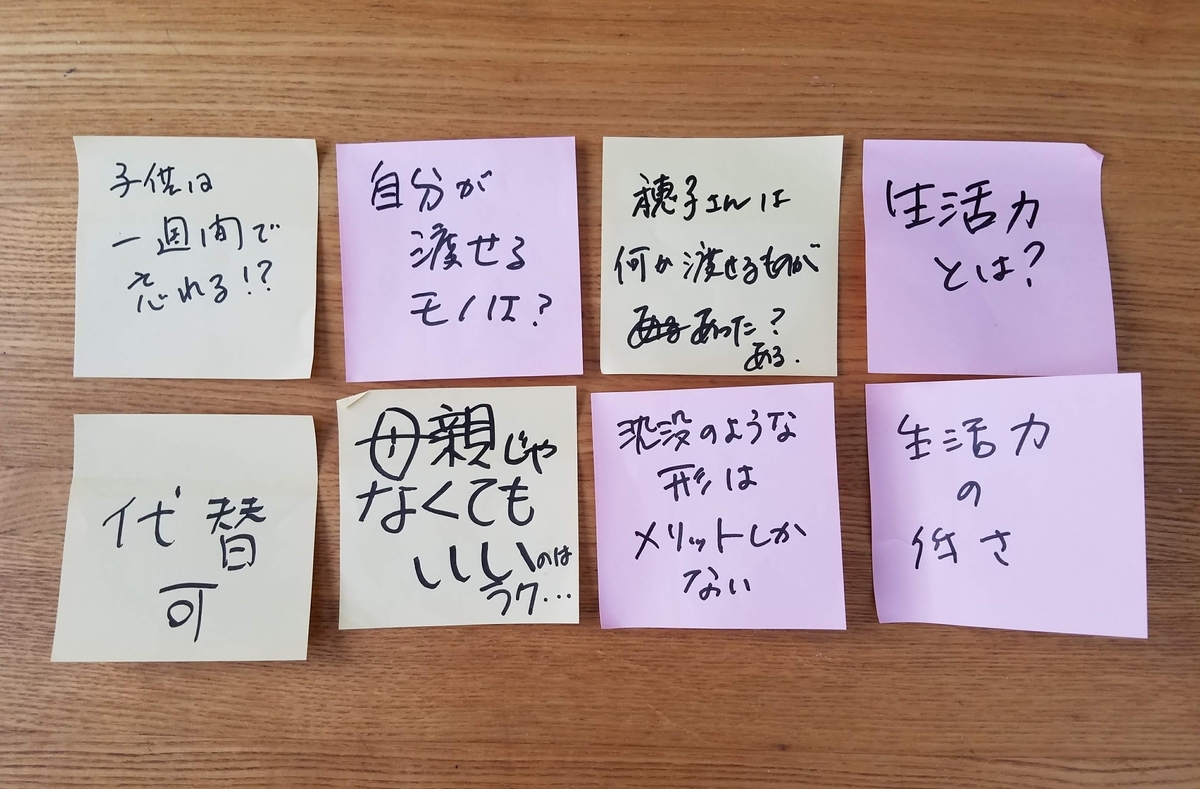 子供は
一週間で
忘れる!?
自分が
渡せる
モノは?
穂子さんは
何か渡せるものが
あった?
ある.
生活力
とは?
代替
可
母親じゃ
なくても
いいのは
ラク…
沈没のような
形は
メリットしか
ない
生活力
の
低さ